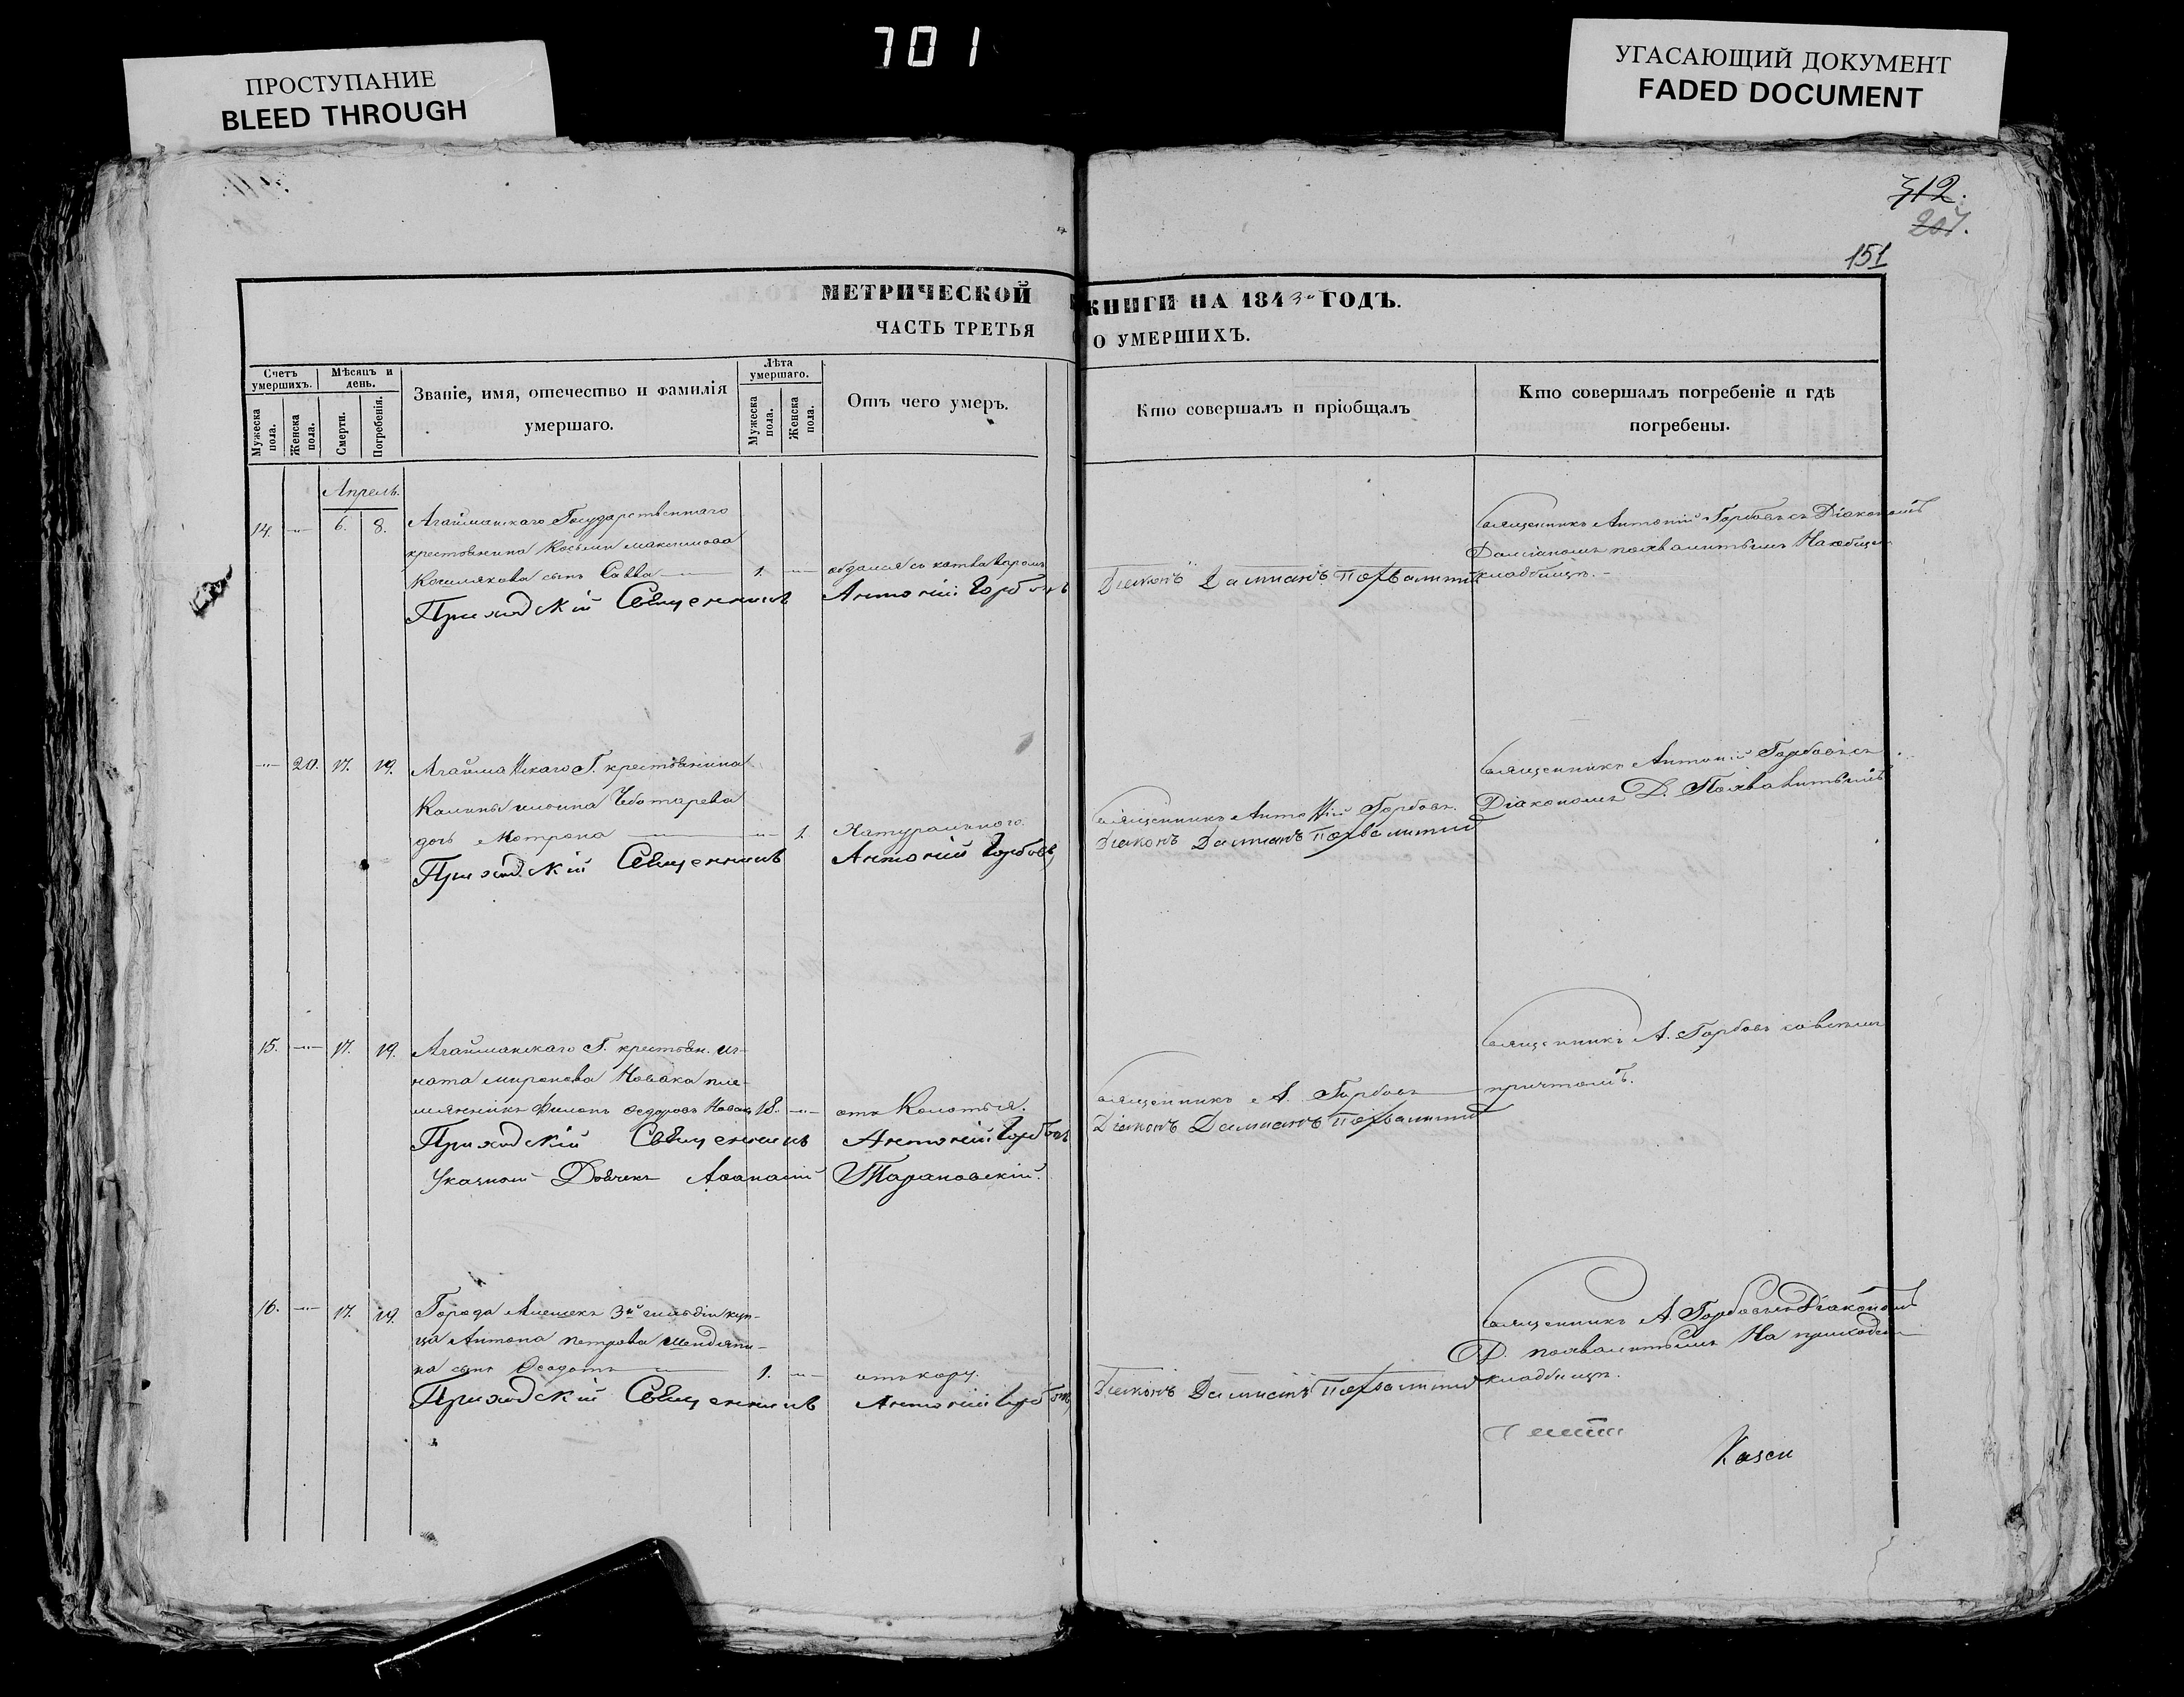 701
ПРОСТУПАНИЕ
BLEED THROUGH
УГАСАЮЩИЙ ДОКУМЕНТ
FADED DOCUMENT
312.
207.
151
МЕТРИЧЕСКОЙ КНИГИ НА 1843й ГОДЪ.
ЧАСТЬ ТРЕТЬЯ О УМЕРШИХЪ.
Счетъ умершихъ.
Мужеска пола.
Женска пола.
Мѣсяцъ и день.
Смерти.
Погребенія.
Званіе, имя, отечество и фамилія
умершаго.
Лѣта умершаго.
Мужеска пола.
Женска пола.
Отъ чего умеръ.
Кто совершалъ и пріобщалъ
Кто совершалъ погребеніе и гдѣ
погребены.
Апрель.
14. — 6. 8. Агайманскаго Государственнаго
крестьянина Косьмы Максимова
сынъ Савва — 1. —
Приходскій Священникъ Антоній Горбовъ
Діаконъ Даміанъ Похвалитый
Священникъ Антоній Горбовъ съ Діакономъ
Даміаномъ Похвалитымъ На общем
кладбищѣ.
— 20. 17. 19. Агайманскаго Г. крестьянина
Калины Чеботарева
дочь Мотрона — 1. Натуральнаго.
Приходскій Священникъ Антоній Горбовъ
Священникъ Антоній Горбовъ.
Діаконъ Даміанъ Похвалитый
Священникъ Антоній Горбовъ съ
Діакономъ Д. Похвалитымъ
15. — 17. 19. Агайманскаго Г. крестьян. Иг-
ната Миронова Новака пле-
мянникъ Филипъ Федоровъ Новакъ 18. — отъ Колотья.
Приходскій Священникъ Антоній Горбовъ
Указной Дьячекъ Афанасій Тарановскій.
Священникъ А. Горбовъ
Діаконъ Даміанъ Похвалитый
Священникъ А. Горбовъ со всѣмъ
причтомъ.
16. — 17. 19. Города Алешекъ 3й гильдіи куп-
ца Антона Петрова
на сынъ Феодотъ — 1. — отъ кору.
Приходскій Священникъ Антоній Горбовъ
Діаконъ Даміанъ Похвалитый
Священникъ А. Горбовъ съ Діакономъ
Д. Похвалитымъ На приходском
кладбищѣ.